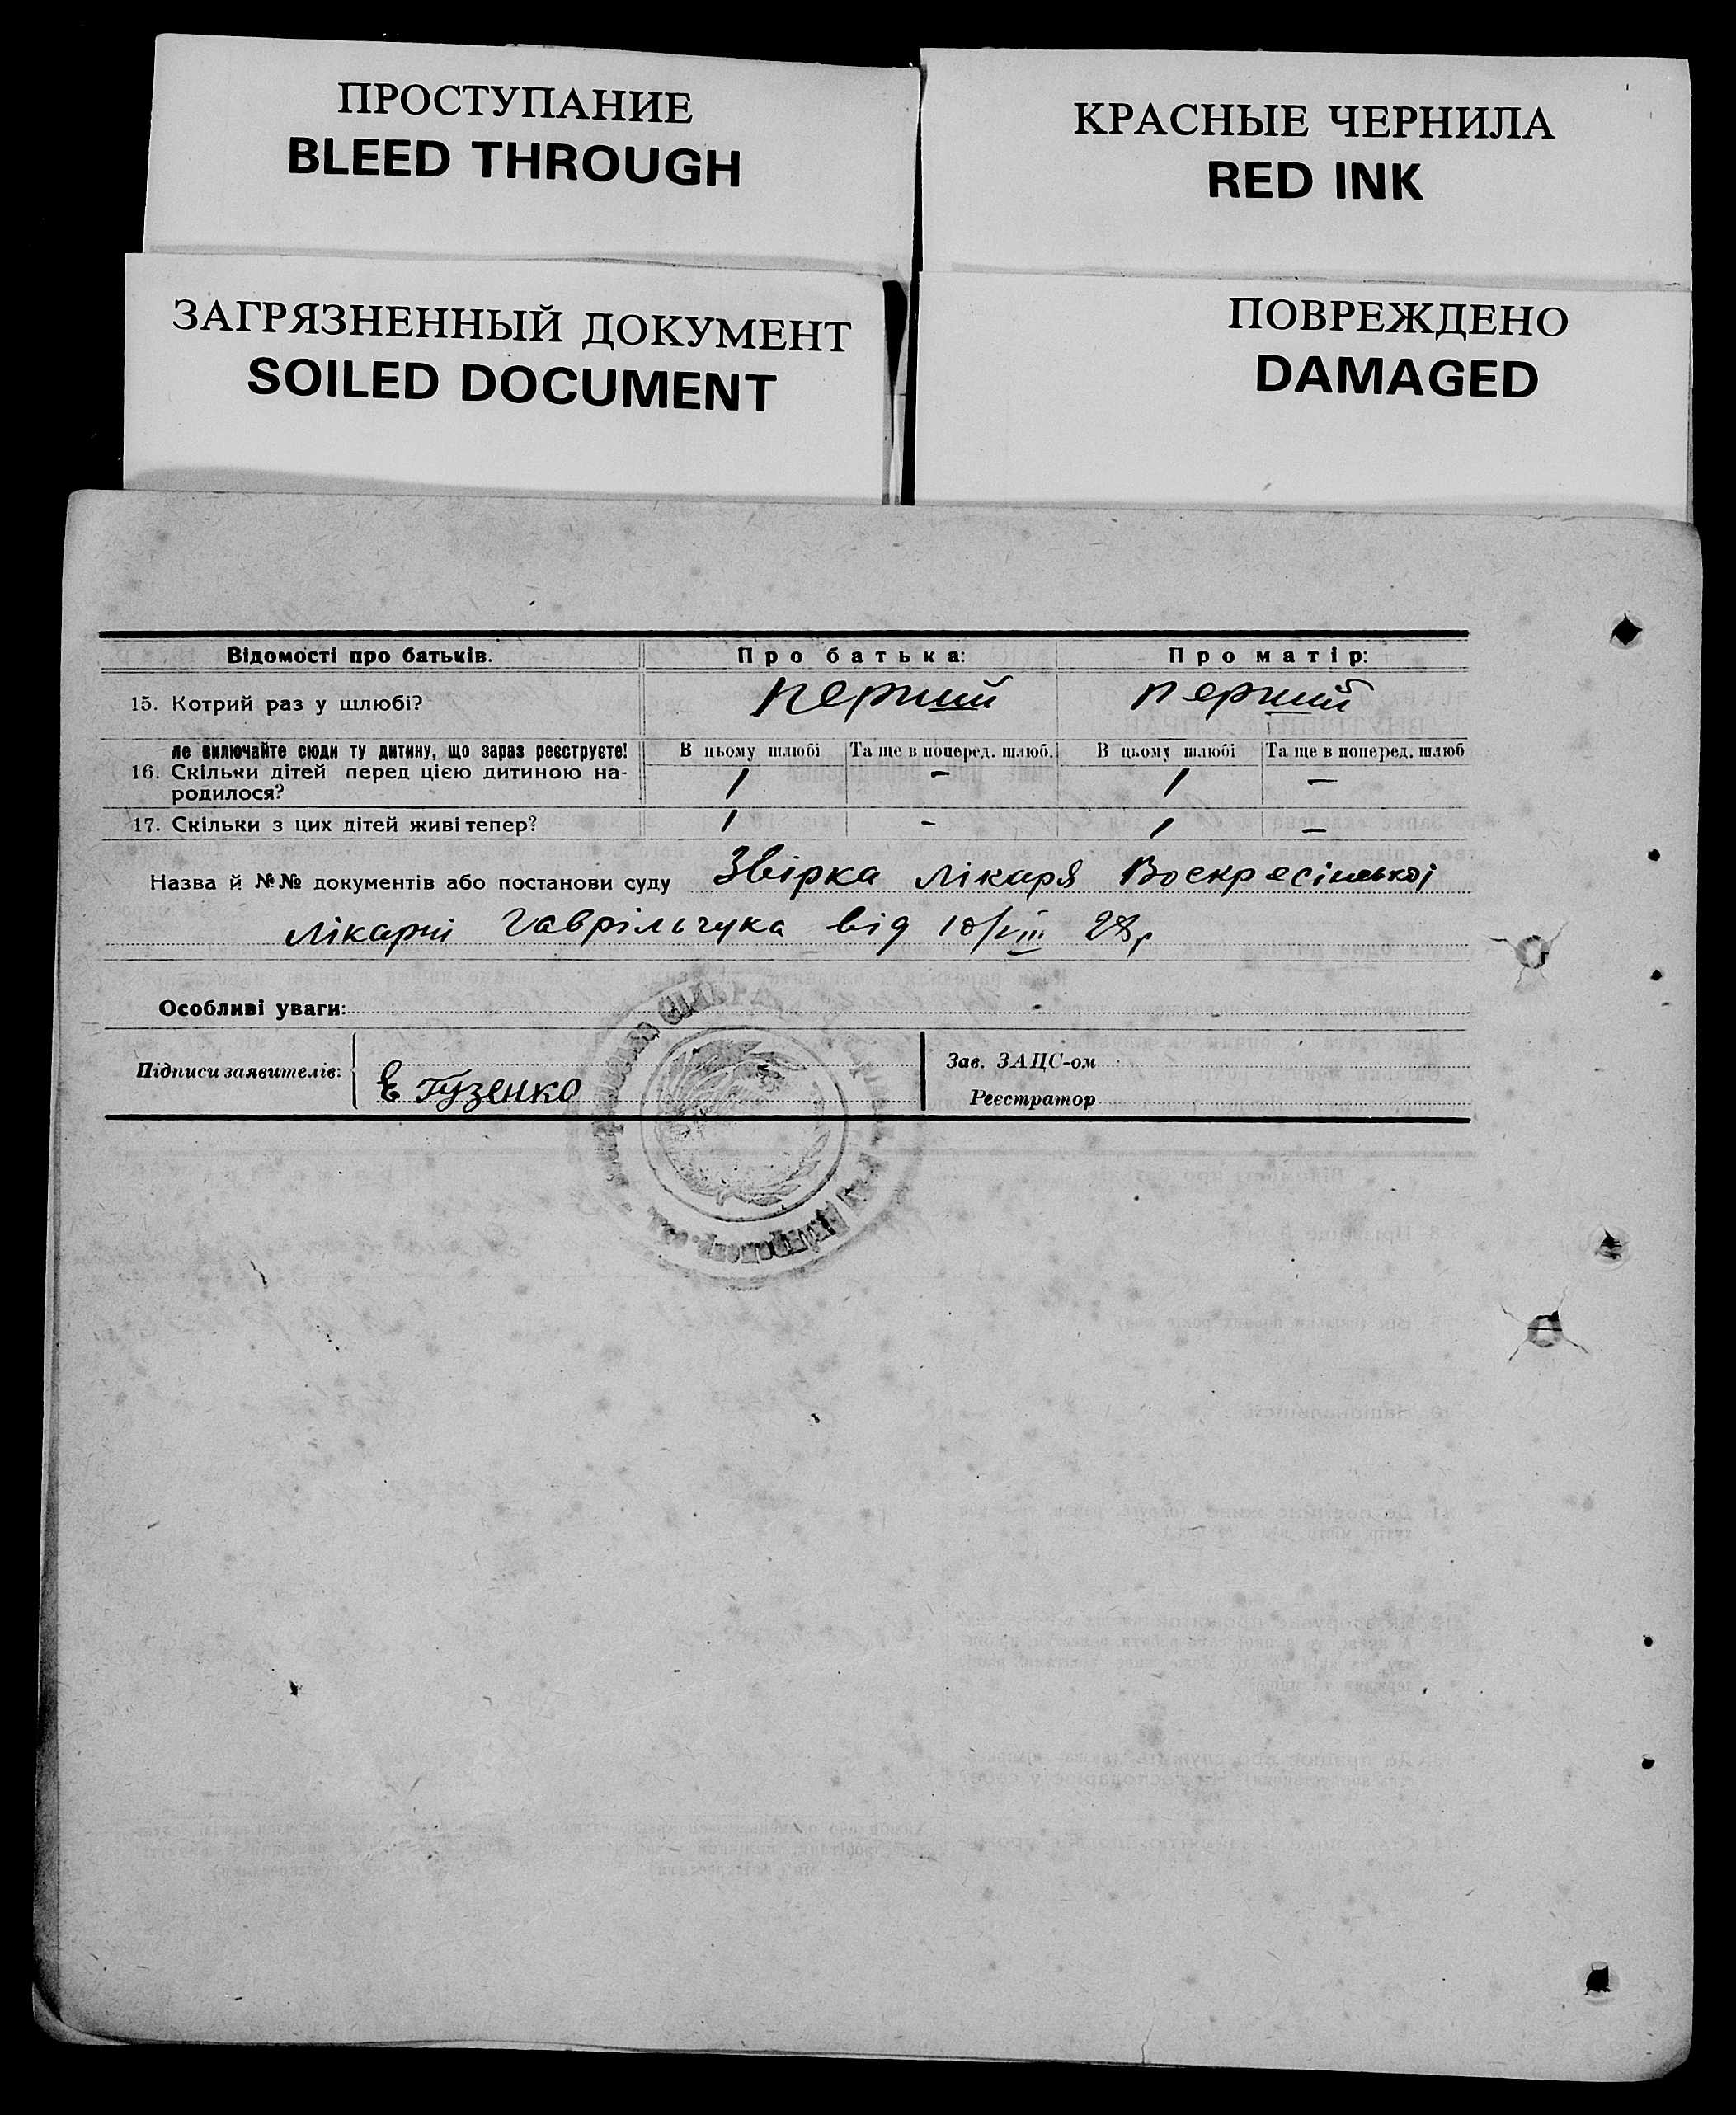 ПРОСТУПАНИЕ
BLEED THROUGH
КРАСНЫЕ ЧЕРНИЛА
RED INK
ЗАГРЯЗНЕННЫЙ ДОКУМЕНТ
SOILED DOCUMENT
ПОВРЕЖДЕНО
DAMAGED
Відомості про батьків. Про батька: Про матір:
15. Котрий раз у шлюбі? перший перший
не включайте сюди ту дитину, що зараз реєструєте! В цьому шлюбі Та ще в поперед. шлюб. В цьому шлюбі Та ще в поперед. шлюб
16. Скільки дітей перед цією дитиною на- 1 – 1 –
родилося?
17. Скільки з цих дітей живі тепер? 1 – 1 –
Назва й №№ документів або постанови суду Звірка лікаря Воскресінської
лікарні Гаврільчука від 10/VIII 28р
Особливі уваги:
Підписи заявителів: Є Гузенко
Зав. ЗАЦС-ом
Реєстратор